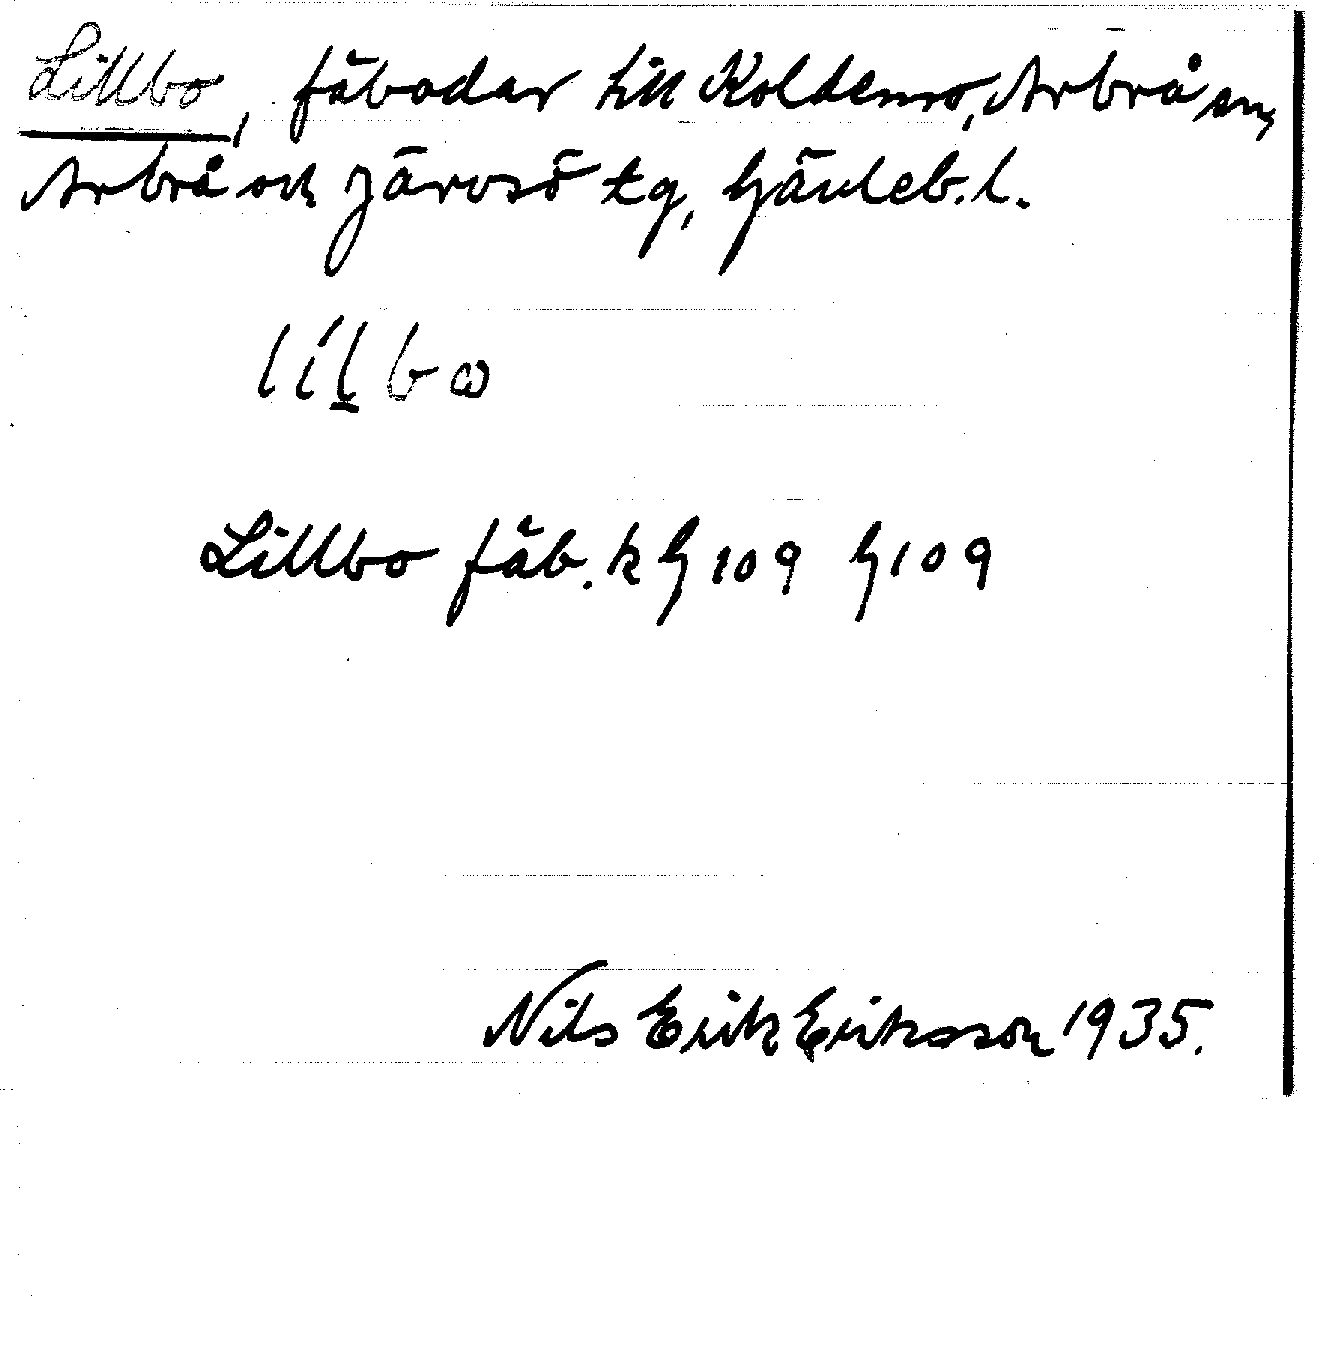 Lillbo, fäbodar till Koldemo, Arbrå sn,
Arbrå och Järvsö tg, Gävleb. l.
lílbω
Lillbo fäb. k G 109 G 109
Nils Erik Eriksson 1935.